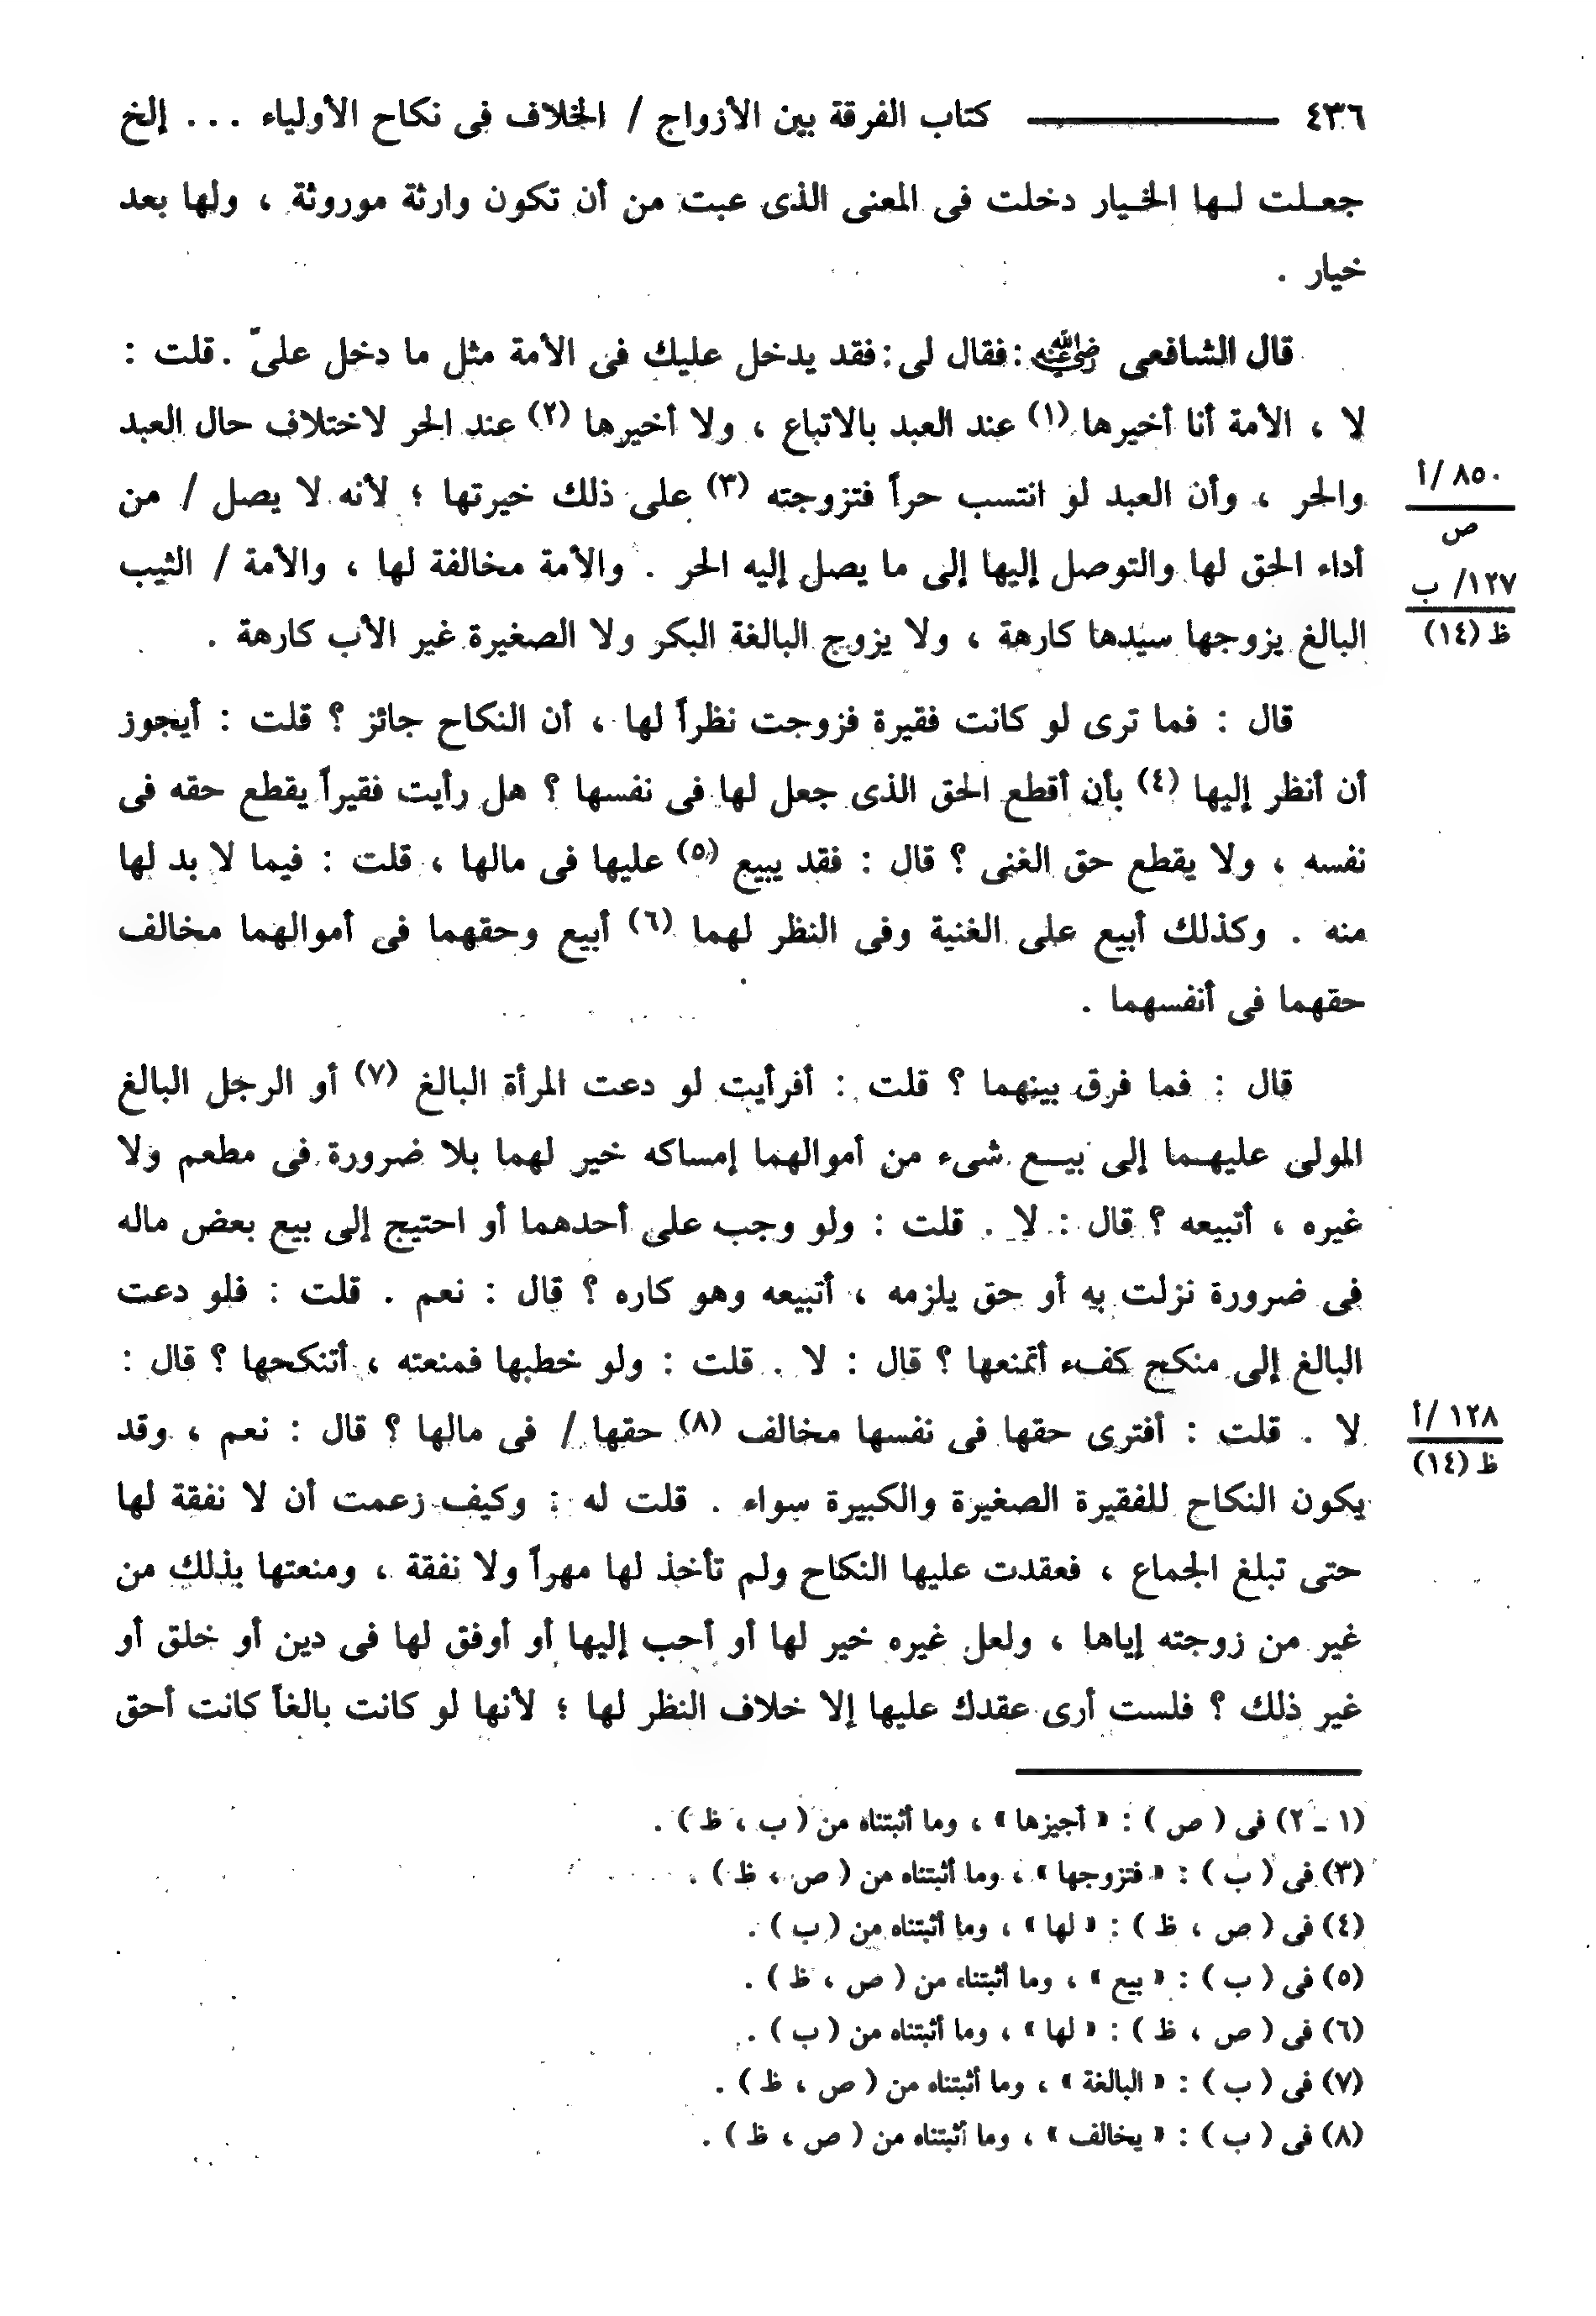 ٤٣٦ ـــــ كتاب الفرقة بين الأزواج / الخلاف فى نكاح الأولياء ... إلخ
جعلت لها الخيار دخلت فى المعنى الذى عبت من أن تكون وارثة موروثة ، ولها بعد
خيار .
قال الشافعى رضي الله عنه : فقال لى : فقد يدخل عليك فى الأمة مثل ما دخل علىّ . قلت :
لا ، الأمة أنا أخيرها (١) عند العبد بالاتباع ، ولا أخيرها (٢) عند الحر لاختلاف حال العبد
والحر ، وأن العبد لو انتسب حراً فتزوجته (٣) على ذلك خيرتها ؛ لأنه لا يصل / من
٨٥٠ /أ
ص
أداء الحق لها والتوصل إليها إلى ما يصل إليه الحر . والأمة مخالفة لها ، والأمة / الثيب
١٢٧/ ب
ظ (١٤)
البالغ يزوجها سيدها كارهة ، ولا يزوج البالغة البكر ولا الصغيرة غير الأب كارهة .
قال : فما ترى لو كانت فقيرة فزوجت نظراً لها ، أن النكاح جائز ؟ قلت : أيجوز
أن أنظر إليها (٤) بأن أقطع الحق الذى جعل لها فى نفسها ؟ هل رأيت فقيراً يقطع حقه فى
نفسه ، ولا يقطع حق الغنى ؟ قال : فقد يبيع (٥) عليها فى مالها ، قلت : فيما لا بد لها
منه . وكذلك أبيع على الغنية وفى النظر لهما (٦) أبيع وحقهما فى أموالهما مخالف
حقهما فى أنفسهما .
قال : فما فرق بينهما ؟ قلت : أفرأيت لو دعت المرأة البالغ (٧) أو الرجل البالغ
المولى عليهما إلى بيع شىء من أموالهما إمساكه خير لهما بلا ضرورة فى مطعم ولا
غيره ، أتبيعه ؟ قال : لا . قلت : ولو وجب على أحدهما أو احتيج إلى بيع بعض ماله
فى ضرورة نزلت به أو حق يلزمه ، أتبيعه وهو كاره ؟ قال : نعم . قلت : فلو دعت
البالغ إلى منكح كفء أتمنعها ؟ قال : لا . قلت : ولو خطبها فمنعته ، أتنكحها ؟ قال :
لا . قلت : أفترى حقها فى نفسها مخالف (٨) حقها / فى مالها ؟ قال : نعم ، وقد
١٢٨ /أ
ظ (١٤)
يكون النكاح للفقيرة الصغيرة والكبيرة سواء . قلت له : وكيف زعمت أن لا نفقة لها
حتى تبلغ الجماع ، فعقدت عليها النكاح ولم تأخذ لها مهراً ولا نفقة ، ومنعتها بذلك من
غير من زوجته إياها ، ولعل غيره خير لها أو أحب إليها أو أوفق لها فى دين أو خلق أو
غير ذلك ؟ فلست أرى عقدك عليها إلا خلاف النظر لها ؛ لأنها لو كانت بالغاً كانت أحق
(١ ـ ٢) فى ( ص ) : « أجيزها » ، وما أثبتناه من ( ب ، ظ ) .
(٣) فى ( ب ) : « فتزوجها » ، وما أثبتناه من ( ص ، ظ ) .
(٤) فى ( ص ، ظ ) : « لها » ، وما أثبتناه من ( ب ) .
(٥) فى ( ب ) : « بيع » ، وما أثبتناء من ( ص ، ظ ) .
(٦) فى ( ص ، ظ ) : « لها » ، وما أثبتناه من ( ب ) .
(٧) فى ( ب ) : « البالغة » ، وما أثبتناه من ( ص ، ظ ) .
(٨) فى ( ب ) : « يخالف » ، وما أثبتناه من ( ص ، ظ ) .